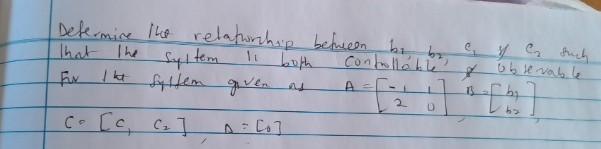 Determine the relationship between b₁ b₂, c₁ & c₂ such
that the system is both controllable & observable
For the system given as A = [-1 1 2 0], B = [b₁ b₂],
C = [c₁ c₂], D = [0]